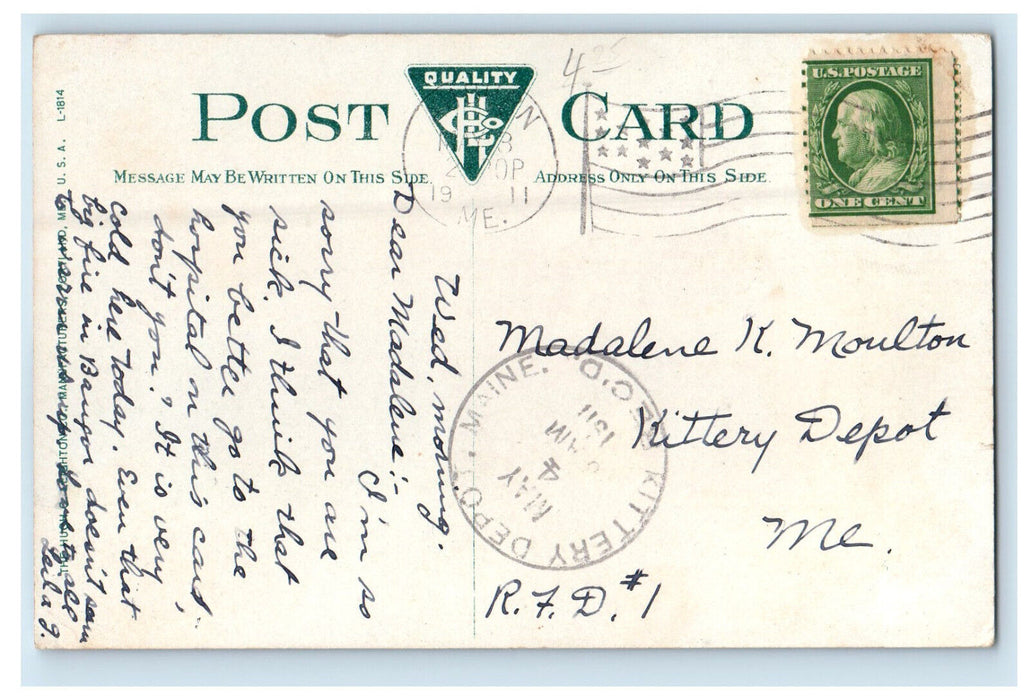 POST CARD
QUALITY
HLCo
MESSAGE MAY BE WRITTEN ON THIS SIDE
ADDRESS ONLY ON THIS SIDE
4
19 11
ME.
U.S. POSTAGE
ONE CENT
Wed. morning.
Dear Madalene:-
I'm so
sorry that you are
sick. I think that
you better go to the
hospital on this card,
don't you? It is very
cold here today. Even that
big fire in Bangor doesn't seem
to
all
Leila J.
Madalene K. Moulton
Kittery Depot
Me.
R.F.D. #1
KITTERY DEPOT, MAINE.
REC'D.
MAY
4
AM
1911
MANUFACTURERS, PORTLAND, ME., U.S.A. L-1814